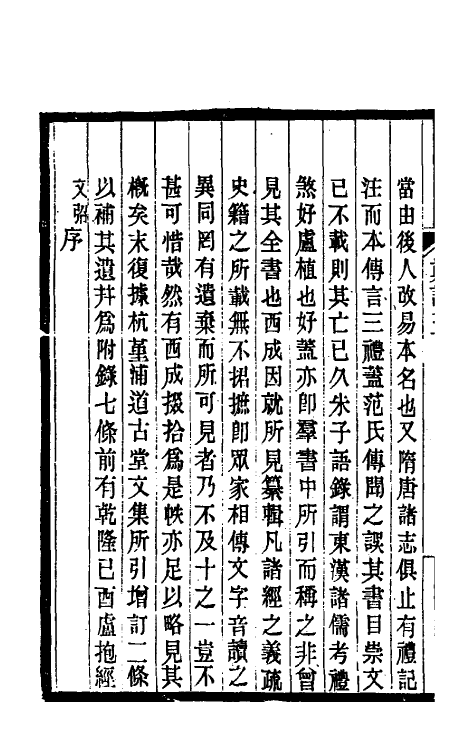 當由後人改易本名也又隋唐諸志俱止有禮記
注而本傳言三禮蓋范氏傳聞之誤其書目崇文
已不載則其亡已久朱子語錄謂東漢諸儒考禮
煞好盧植也好蓋亦卽羣書中所引而稱之非曾
見其全書也西成因就所見纂輯凡諸經之義疏
史籍之所載無不捃摭卽眾家相傳文字音讀之
異同罔有遺棄而所可見者乃不及十之一豈不
甚可惜哉然有西成掇拾爲是帙亦足以略見其
槪矣末復據杭堇浦道古堂文集所引增訂二條
以補其遺幷爲附錄七條前有乾隆已酉盧抱經
文弨序